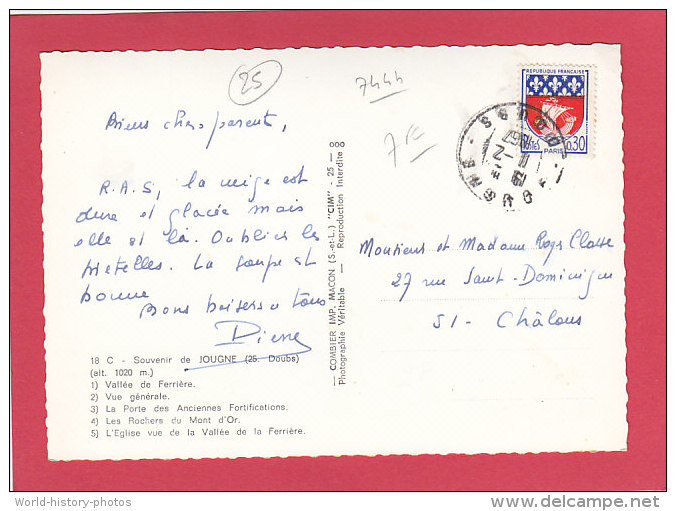 25
7444
REPUBLIQUE FRANÇAISE
POSTES PARIS 0.30
JOUGNE DOUBS
chers parents,
R.A.S, la neige est
dure et glacée mais
elle est là. Oubliées les
bretelles. La soupe est
bonne
Bons baisers a tous
Pierre
Monsieur et Madame Roger Classe
27 rue Saint-Dominique
51 - Châlons
18 C - Souvenir de JOUGNE (25. Doubs)
(alt. 1020 m.)
1) Vallée de Ferrière.
2) Vue générale.
3) La Porte des Anciennes Fortifications.
4) Les Rochers du Mont d'Or.
5) L'Eglise vue de la Vallée de la Ferrière.
— COMBIER IMP. MACON (S.-et-L.) "CIM" - 25 - 800
Photographie Véritable — Reproduction Interdite
World-history-photos
delcampe.net